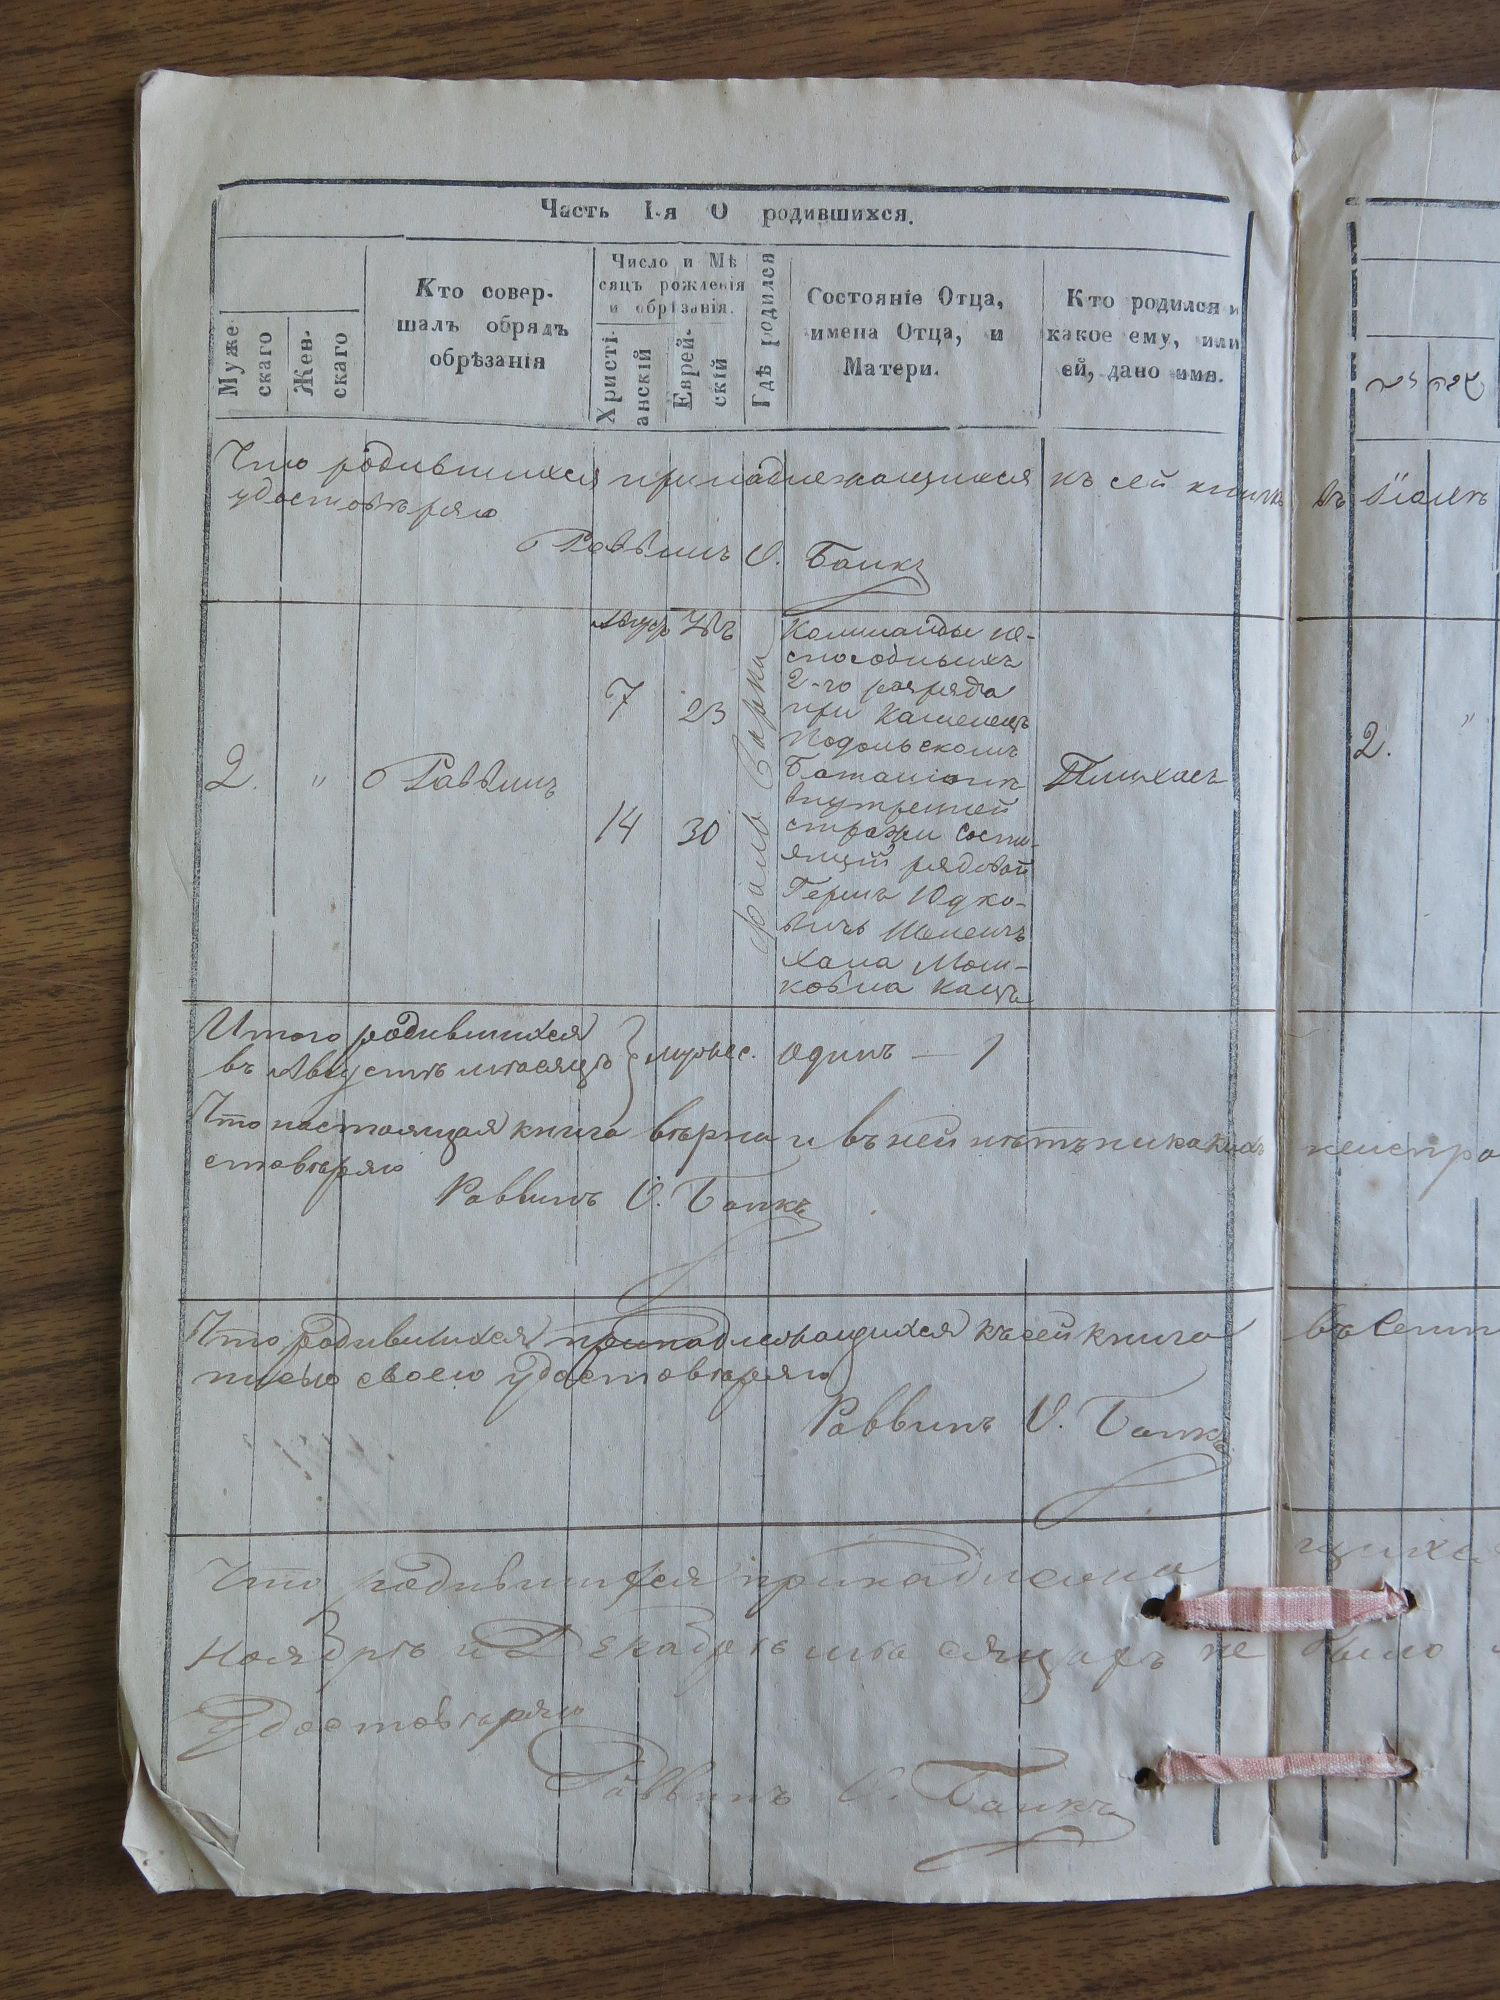 Часть I-я О родившихся.
Муже
скаго
Жен-
скаго
Кто совер-
шалъ обрядъ
обрѣзанія
Число и Мѣ
сяцъ рожденія
и обрѣзанія.
Христі-
анскій
Еврей-
скій
Гдѣ родился
Состояніе Отца,
имена Отца, и
Матери.
Кто родился и
какое ему, или
ей, дано имя.
Что родившихся принадлежащихся къ сей книгѣ въ Іюлѣ
удостовѣряю
Раввинъ О. Банкъ
Августъ
7 23
14 30
2. " Раввинъ
Команды не-
способныхъ
2-го разряда
при Каменецъ
Подольскомъ
Баталіонѣ
внутренней
стражи состо-
ящій рядовой
Гершъ Юдко-
вичъ
Хана Мош-
ковна
Пинхасъ
2. "
Итого родившихся
въ Августѣ мѣсяцѣ } мужес. одинъ — 1
Что настоящая книга вѣрна и въ ней нѣтъ никакихъ неиспра
стовѣряю
Раввинъ О. Банкъ
Что родившихся принадлежащихся къ сей книга въ Сент
писью своею удостовѣряю
Раввинъ О. Банкъ
Что родившихся принадлежа щихся
Ноябрѣ и Декабрѣ мѣсяцахъ не было
Удостовѣряю
Раввинъ О. Банкъ